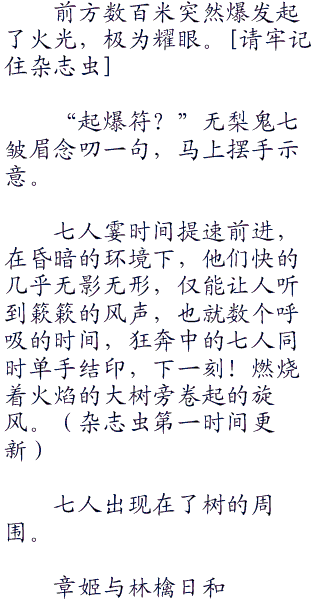 前方数百米突然爆发起
了火光，极为耀眼。[请牢记
住杂志虫]
“起爆符？”无梨鬼七
皱眉念叨一句，马上摆手示
意。
七人霎时间提速前进，
在昏暗的环境下，他们快的
几乎无影无形，仅能让人听
到簌簌的风声，也就数个呼
吸的时间，狂奔中的七人同
时单手结印，下一刻！燃烧
着火焰的大树旁卷起的旋
风。（杂志虫第一时间更
新）
七人出现在了树的周
围。
章姬与林檎日和